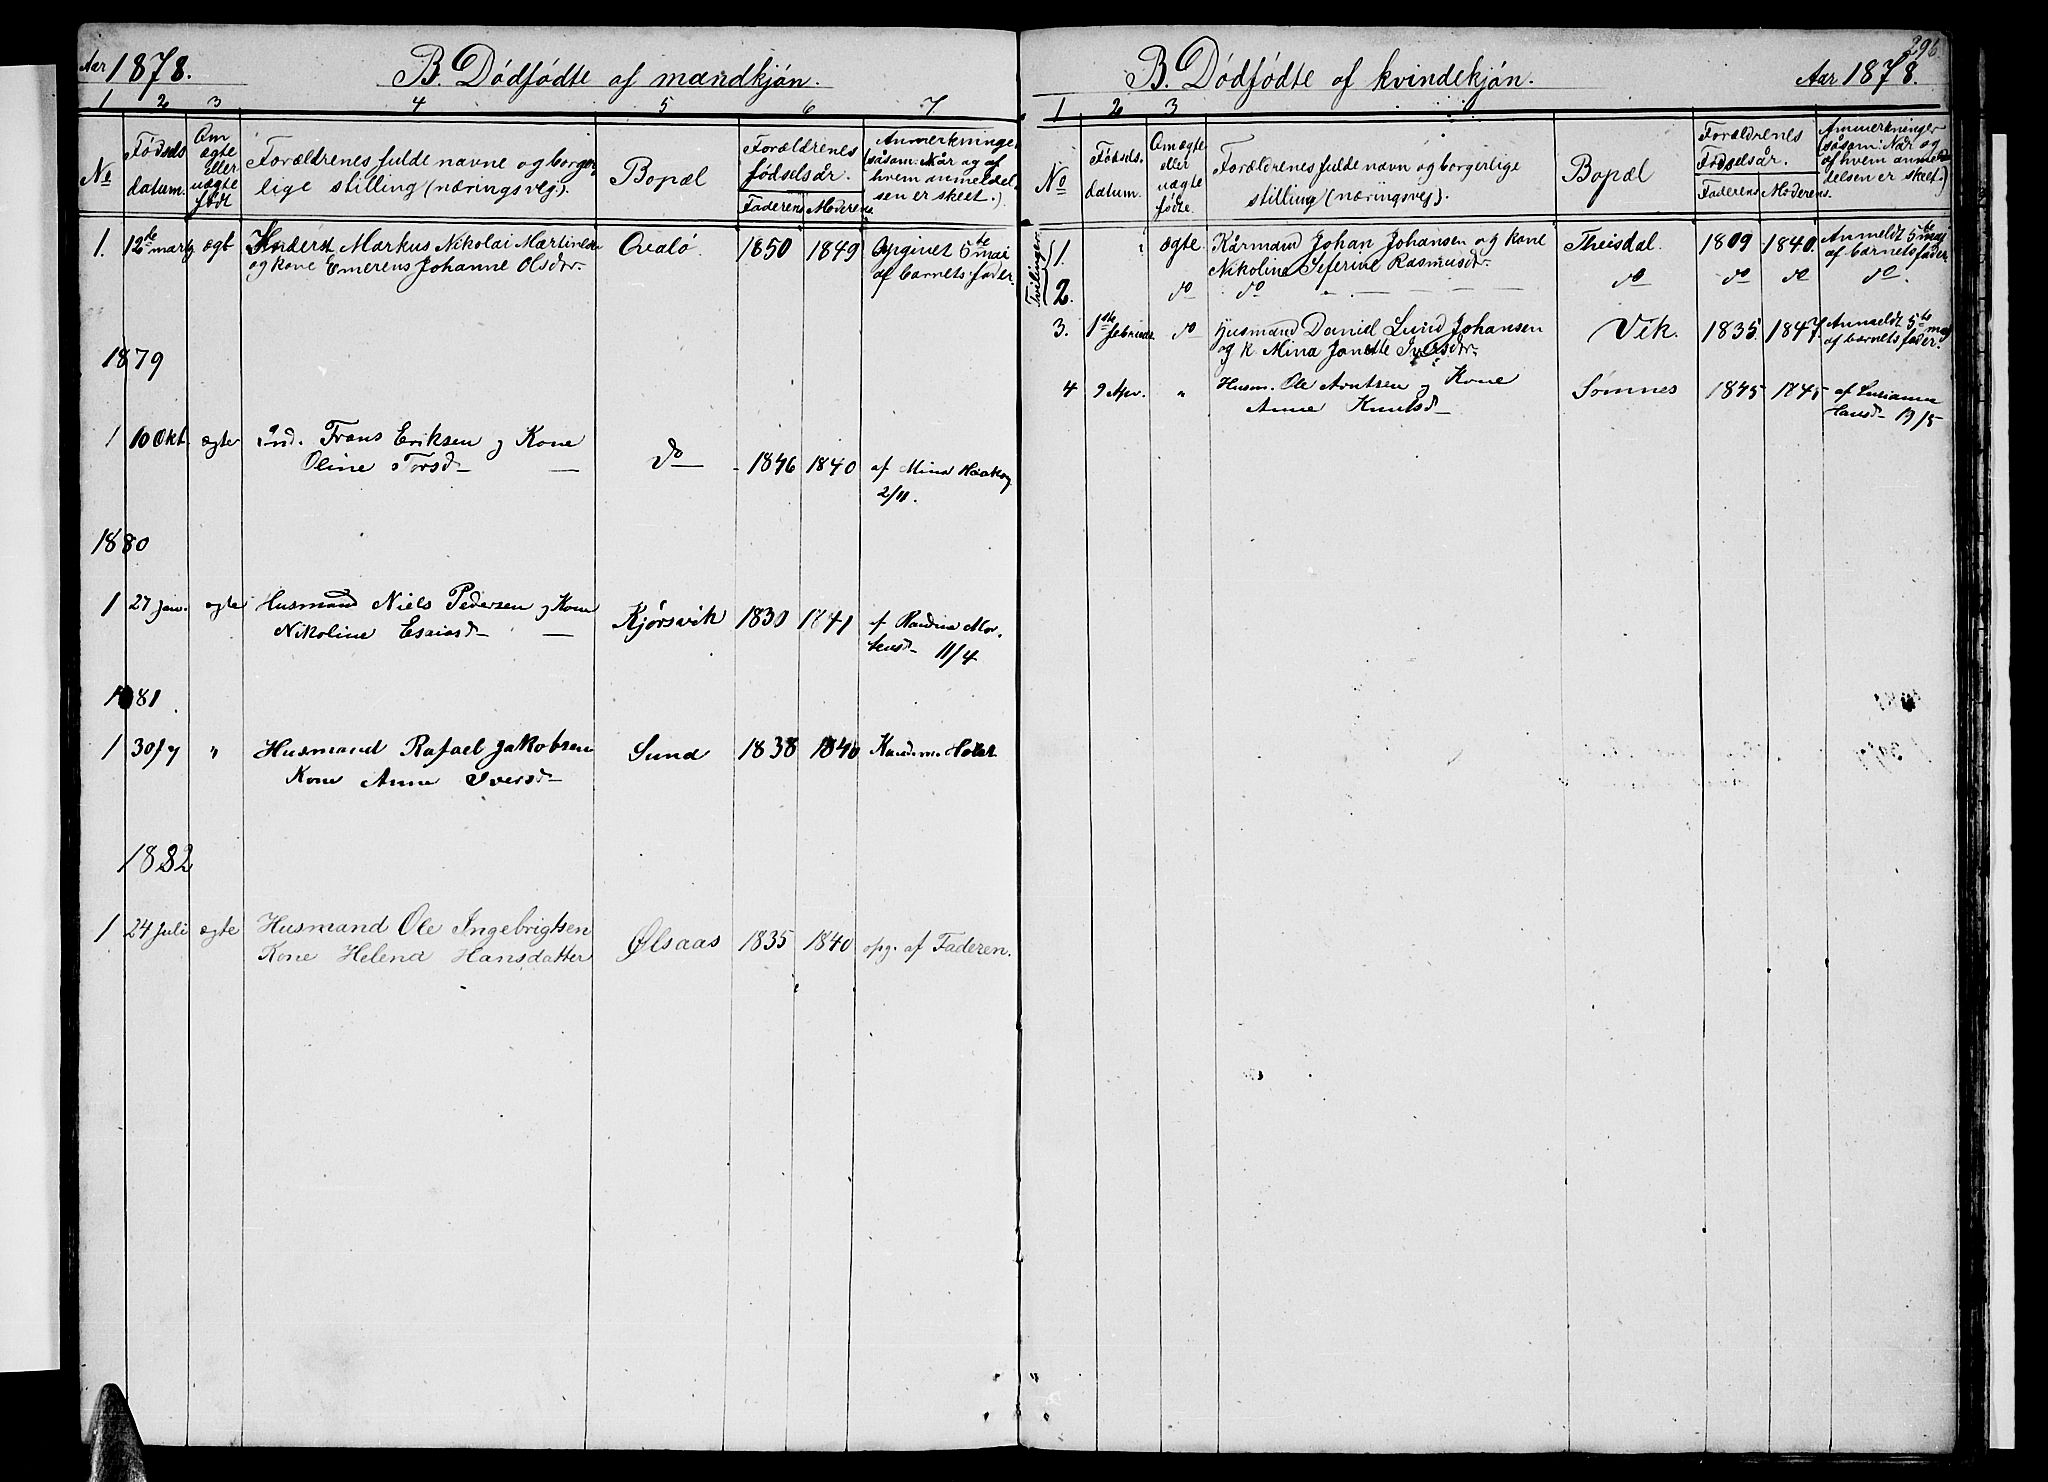 Aar 1878.
B. Dødfødte af mandkjøn.
1 2 3 4 5 6 7
No
Fødsels
datum.
Om
ægte
eller
uægte
født
Forældrenes fulde navne og borger-
lige stilling (næringsvej).
Bopæl
Forældrenes
fødselsår.
Faderens Moderens
Anmerkninge
(såsom: Når og af
hvem anmeldel-
sen er skeet.)
1. 12te marts ægt Markus Nikolai Martinsen Ovalø. 1850 1849 Opgivet 5te mai
og kone Emerens Johanne Olsdtr. af barnets fader.
1879
1 10 Okt. ægte Ind. Frans Eriksen og Kone do 1846 1840 af Mina Haaksg
Oline Torsd— 2/11.
1880
1 27 Jan. ægte Husmand Niels Pedersen og Kone Kjørsvik 1830 1841 af Randine Mor-
Nikoline Esaiasd— tensd— 11/4
1881
1 30/7 " Husmand Rafael Jakobsen Sund 1838 1840
Kone Anne Iversd—
1882
1 24 Juli ægte Husmand Ole Ingebrigtsen Ølsaas 1835 1840 opg. af Faderen.
Kone Helena Hansdatter
296
B. Dødfødte af kvindekjøn.
Aar 1878.
1 2 3
No
Fødsels-
datum.
Om ægte
eller
uægte
fødte.
Forældrenes fulde navn og borgerlige
stilling (næringsvej).
Bopæl
Forældrenes
Fødselsår.
Faderens Moderens.
Anmerkninger
(såsom: Når og
af hvem anmel-
delsen er skeet.)
Tvillinger
1. ægte Kårmand Johan Johansen og kone Theisdal. 1809 1840. Anmeldt 5te mai
Nikoline Seferine Rasmusdtr. af barnets fader
2. do do do do do do.
3. 1ste februar do Husmand Daniel Lund Johansen Vik. 1835. 1847. Anmeldt 5te maj
og k. Mina Janette Iversdtr. af barnets fader.
4 9 Apr. " Husm. Ole Arntsen og Kone Sømnes 1845 1845 af Susanna
Anne Knutsd— Hansd— 13/5